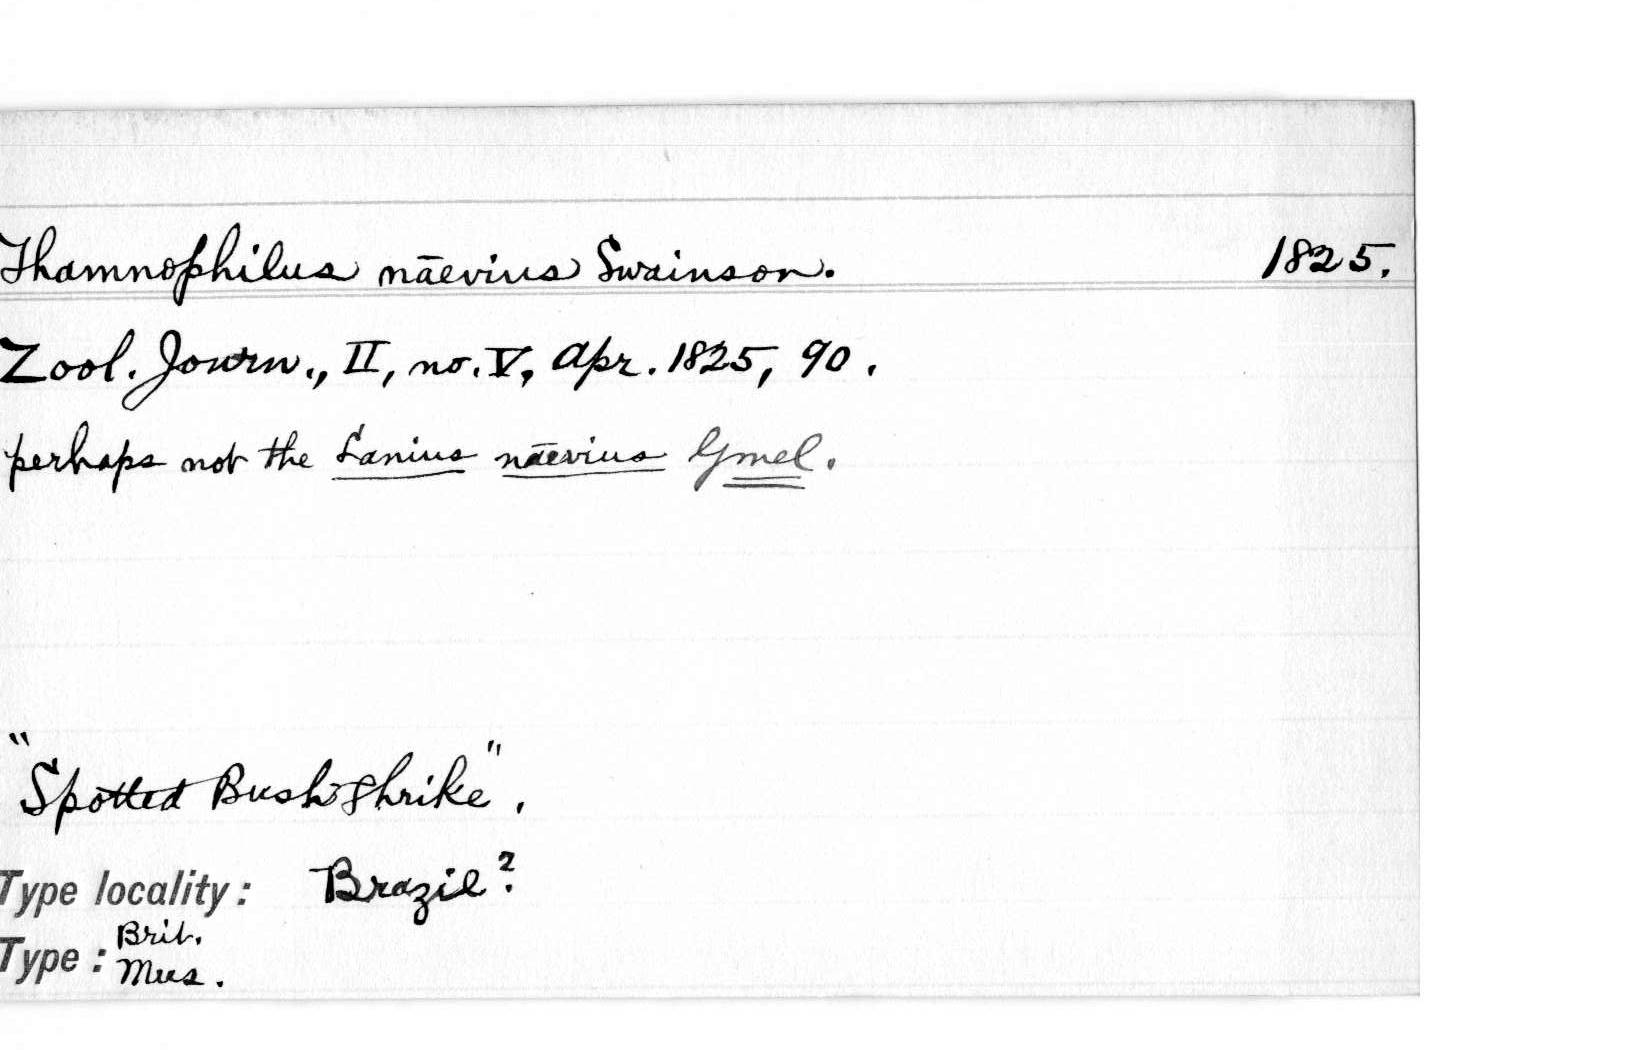 Thamnophilus nāevius Swainson. 1825.
Zool. Journ., II, no. V, Apr. 1825, 90.
perhaps not the Lanius nāevius Gmel.
"Spotted Bush Shrike".
Type locality: Brazil?
Type: Brit.
Mus.